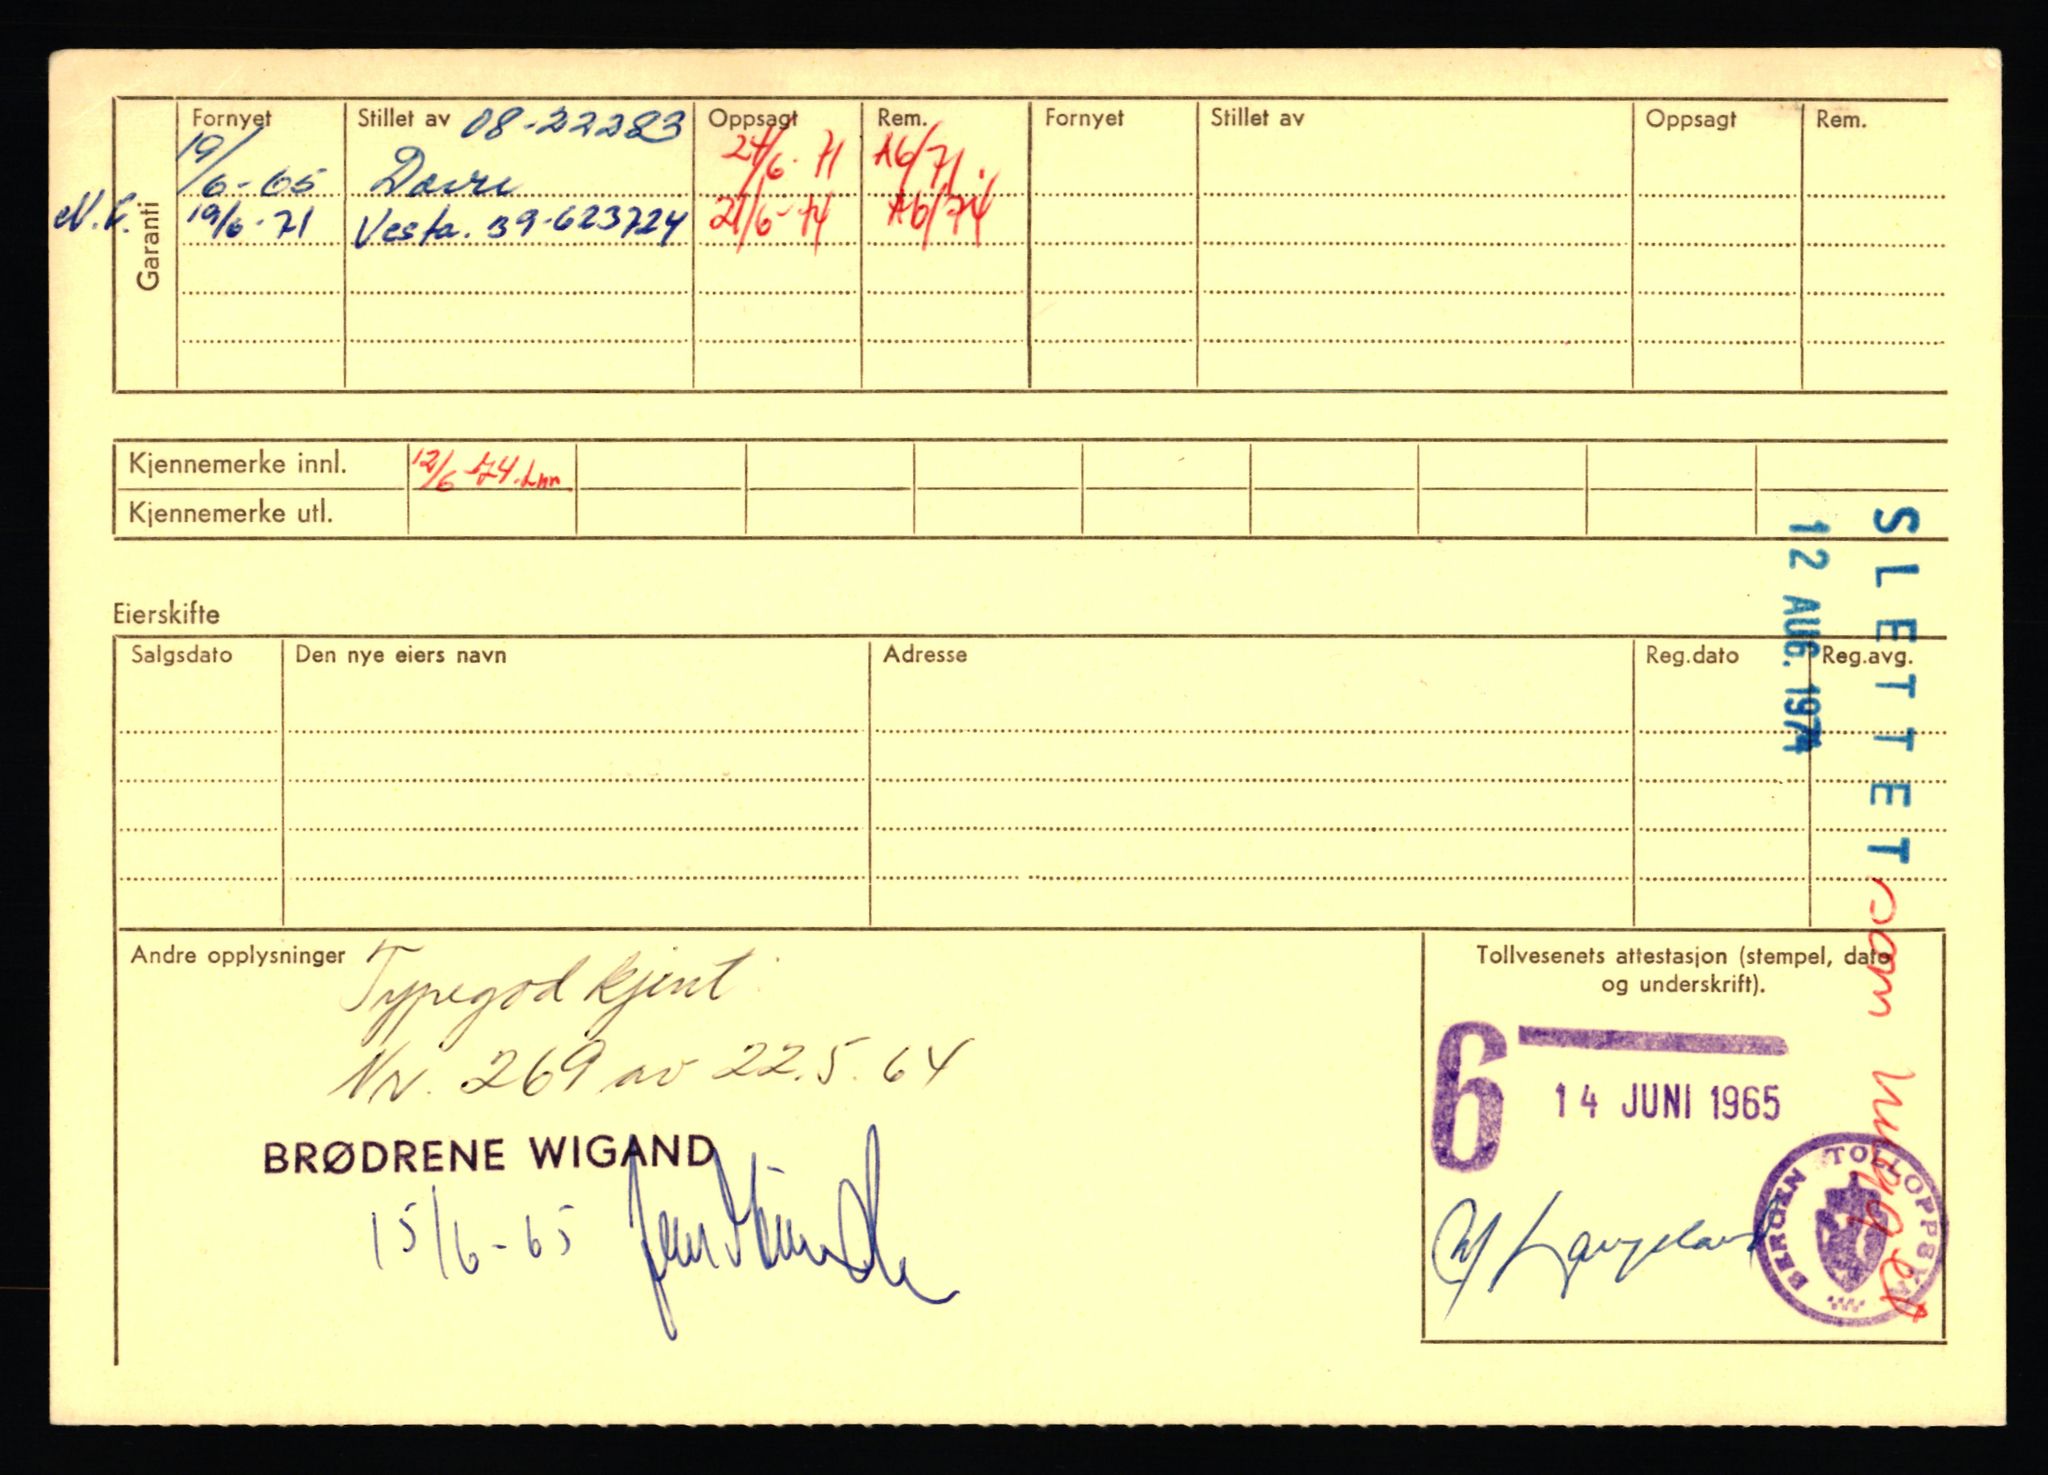 Garanti
Fornyet Stillet av 08-22283 Oppsagt Rem. Fornyet Stillet av Oppsagt Rem.
19/6-65 Dovre 24/6-71 A6/71.
N.E. 19/6-71 Vesta. 39-623724 21/6-74 A6/74
Kjennemerke innl. 12/6-74.
Kjennemerke utl.
SLETTET som vraket
12 AUG. 1974
Eierskifte
Salgsdato Den nye eiers navn Adresse Reg.dato Reg.avg.
Andre opplysninger
Typegodkjent
Nr. 269 av 22.5.64
BRØDRENE WIGAND
15/6-65
Tollvesenets attestasjon (stempel, dato
og underskrift).
6
14 JUNI 1965
BERGEN TOLLOPPSYN